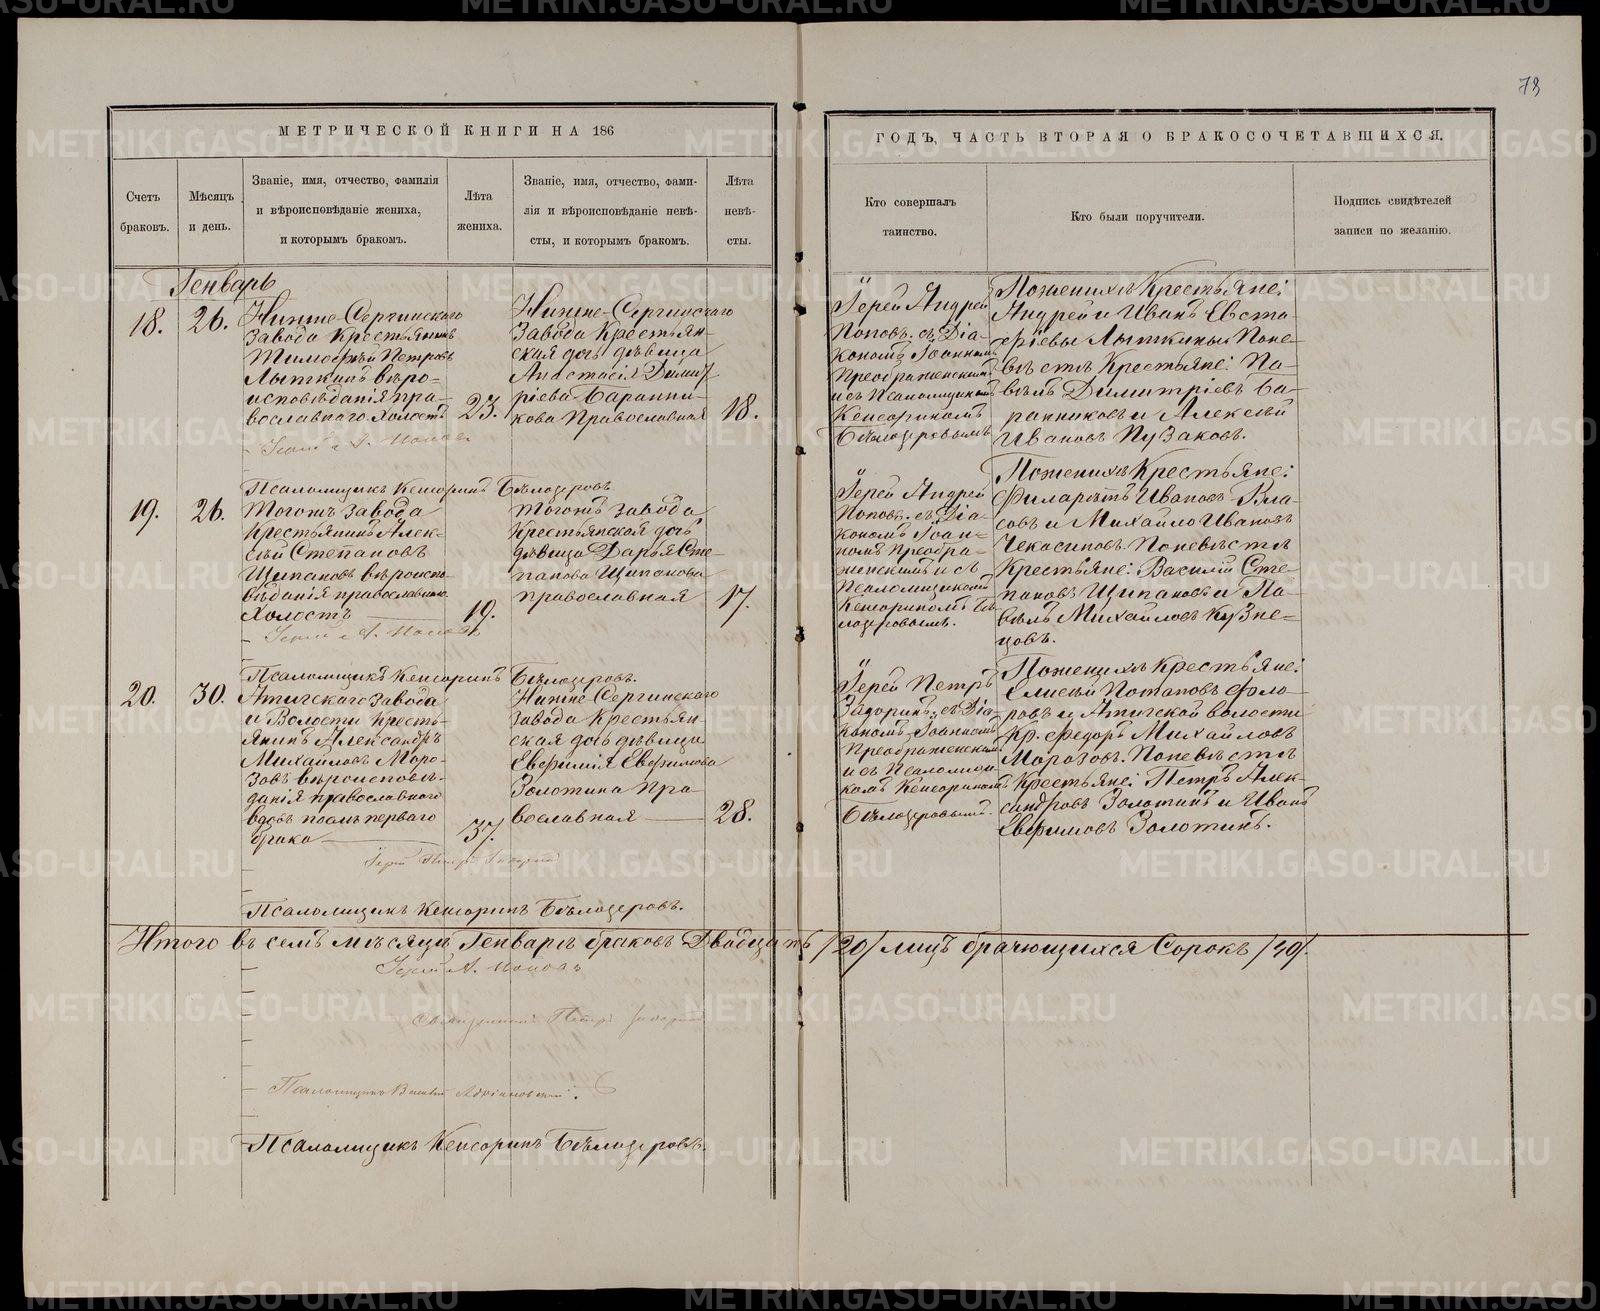 78
МЕТРИЧЕСКОЙ КНИГИ НА 186
ГОДЪ, ЧАСТЬ ВТОРАЯ О БРАКОСОЧЕТАВШИХСЯ.
Счетъ
браковъ.
Мѣсяцъ
и день.
Званіе, имя, отчество, фамилія
и вѣроисповѣданіе жениха,
и которымъ бракомъ.
Лѣта
жениха.
Званіе, имя, отчество, фами-
лія и вѣроисповѣданіе невѣ-
сты, и которымъ бракомъ.
Лѣта
невѣ-
сты.
Кто совершалъ
таинство.
Кто были поручители.
Подпись свидѣтелей
записи по желанію.
Генварь
18.
26.
Нижне-Сергинскаго
Завода Крестьянинъ
Тимофѣй Петровъ
Лыткинъ вѣро-
исповѣданія пра-
вославнаго Холостъ
23.
Нижне-Сергинскаго
Завода Крестьян-
ская дочь дѣвица
Анастасія Димит
ріева Баранни-
кова Православная
18.
Іерей Андрей
Поповъ. съ Діа-
кономъ Іоанномъ
Преображенскимъ
и съ Псаломщикомъ
Кенсориномъ
Бѣлозеровымъ
По женихѣ Крестьяне:
Андрей и Иванъ Евста-
фіевы Лыткины По не-
вѣстѣ Крестьяне: Па-
вѣлъ Димитріевъ Ба-
ранниковъ и Алексѣй
Ивановъ Пузаковъ.
Іерей А. Поповъ
Псаломщикъ Кенсоринъ Бѣлозеровъ
19.
26.
Тогожъ завода
Крестьянинъ Алек-
сѣй Степановъ
Щипановъ вѣроиспо-
вѣданія православнаго
Холостъ
19.
Тогожъ завода
Крестьянская дочь
дѣвица Дарья Сте-
панова Щипанова
православная
17.
Іерей Андрей
Поповъ. съ Діа-
кономъ Іоан-
номъ Преобра-
женскимъ и съ
Псаломщикомъ
Кенсориномъ Бѣ
лозеровымъ.
По женихѣ Крестьяне:
Филаретъ Ивановъ Вла-
совъ и Михайло Ивановъ
Чекасиновъ. По невѣстѣ
Крестьяне: Василій Сте-
пановъ Щипановъ и Па-
вѣлъ Михайловъ Кузне-
цовъ.
Іерей А. Поповъ
Псаломщикъ Кенсоринъ Бѣлозеровъ.
20.
30.
Атигскаго Завода
и Волости Кресть-
янинъ Александръ
Михайловъ Моро-
зовъ вѣроисповѣ-
данія православнаго
вдовъ послѣ перваго
брака
37.
Нижне-Сергинскаго
завода Крестьян-
ская дочь дѣвица
Евфимія Евфимова
Золотина Пра
вославная
28.
Іерей Петръ
Задоринъ. съ Діа-
кономъ Іоанномъ
Преображенским
и съ Псаломщи
комъ Кенсориномъ
Бѣлозеровымъ.
По женихѣ Крестьяне:
Елисѣй Потаповъ Фло-
ровъ и Атигской волости
Кр. Федоръ Михайловъ
Морозовъ. По невѣстѣ
Крестьяне: Петръ Алек-
сандровъ Золотинъ и Иванъ
Евфимовъ Золотинъ.
Іерей Петръ Задоринъ
Псаломщикъ Кенсоринъ Бѣлозеровъ.
Итого въ семъ мѣсяцѣ Генварѣ браковъ Двадцать /20/ лицъ брачющихся Сорокъ /40/.
Іерей А. Поповъ
Священникъ Петръ Задоринъ
Псаломщикъ Василій Адріановскій.
Псаломщикъ Кенсоринъ Бѣлозеровъ.
METRIKI.GASO-URAL.RU